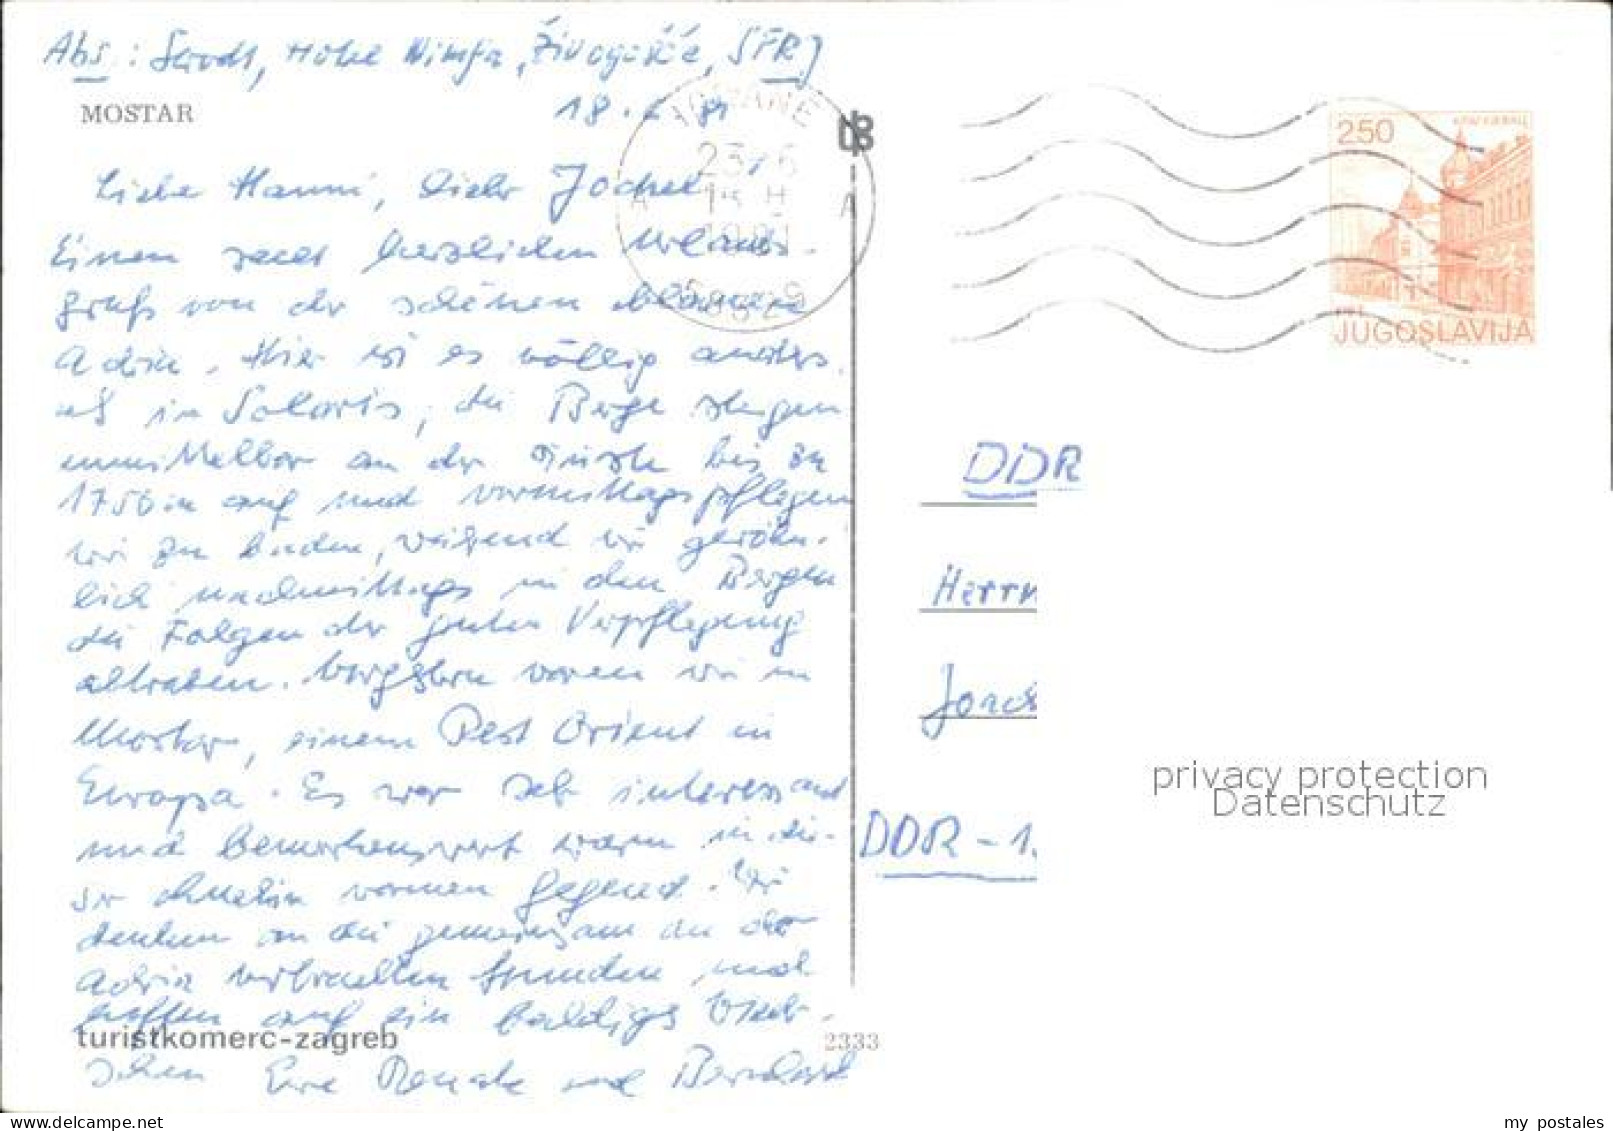 Abs.: Hotel Nimfa, Živogošće, SFRJ
MOSTAR
18.6.81
IGRANE
23.6
1981
58329
A A
Liebe Hanni, lieber Jochen!
Einen recht herzlichen Urlaubs-
gruß von der schönen blauen
Adria. Hier ist es völlig anders
als in Solaris, die Berge steigen
unmittelbar an der Küste bis zu
1750m auf und vormittags pflegen
wir zu baden, während wir gewöhn-
lich nachmittags in den Bergen
die Folgen der guten Verpflegung
abtraben. Vorgestern waren wir in
Mostar, einem Rest Orient in
Europa. Es war sehr interessant
und bemerkenswert warm in die-
ser ohnehin warmen Gegend. Wir
denken an die gemeinsam an der
Adria verbrachten Stunden und
hoffen auf ein baldiges Wieder-
sehen Eure Renate und Bernhard
turistkomerc-zagreb
2333
2.50
JUGOSLAVIJA
DDR
Herrn
DDR-1
privacy protection
Datenschutz
my postales
www.delcampe.net